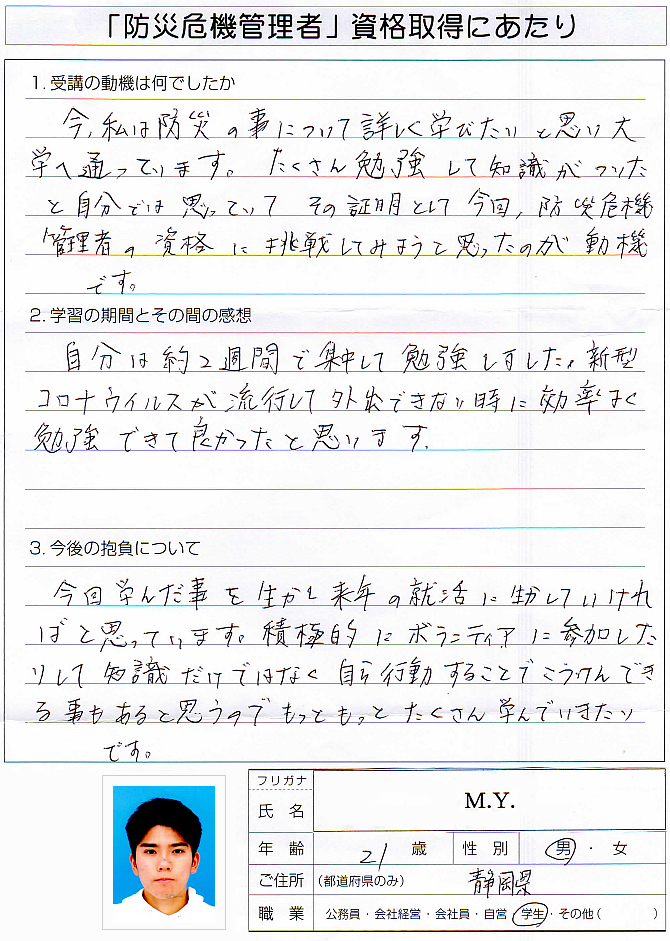 「防災危機管理者」資格取得にあたり
1. 受講の動機は何でしたか
今、私は防災の事について詳しく学びたいと思い大
学へ通っています。たくさん勉強して知識がついた
と自分では思っていて その証明として今回、防災危機
管理者の資格に挑戦してみようと思ったのが動機
です。
2. 学習の期間とその間の感想
自分は約2週間で集中して勉強しました。新型
コロナウイルスが流行して外出できない時に効率よく
勉強できて良かったと思います。
3. 今後の抱負について
今回学んだ事を生かし来年の就活に生かしていけれ
ばと思っています。積極的にボランティアに参加した
りして知識だけではなく自ら行動することでこうけんでき
る事もあると思うのでもっともっとたくさん学んでいきたい
です。
フリガナ
氏 名 M.Y.
年 齢 21 歳 性 別 男・女
ご住所 (都道府県のみ) 静岡県
職 業 公務員・会社経営・会社員・自営・学生・その他( )